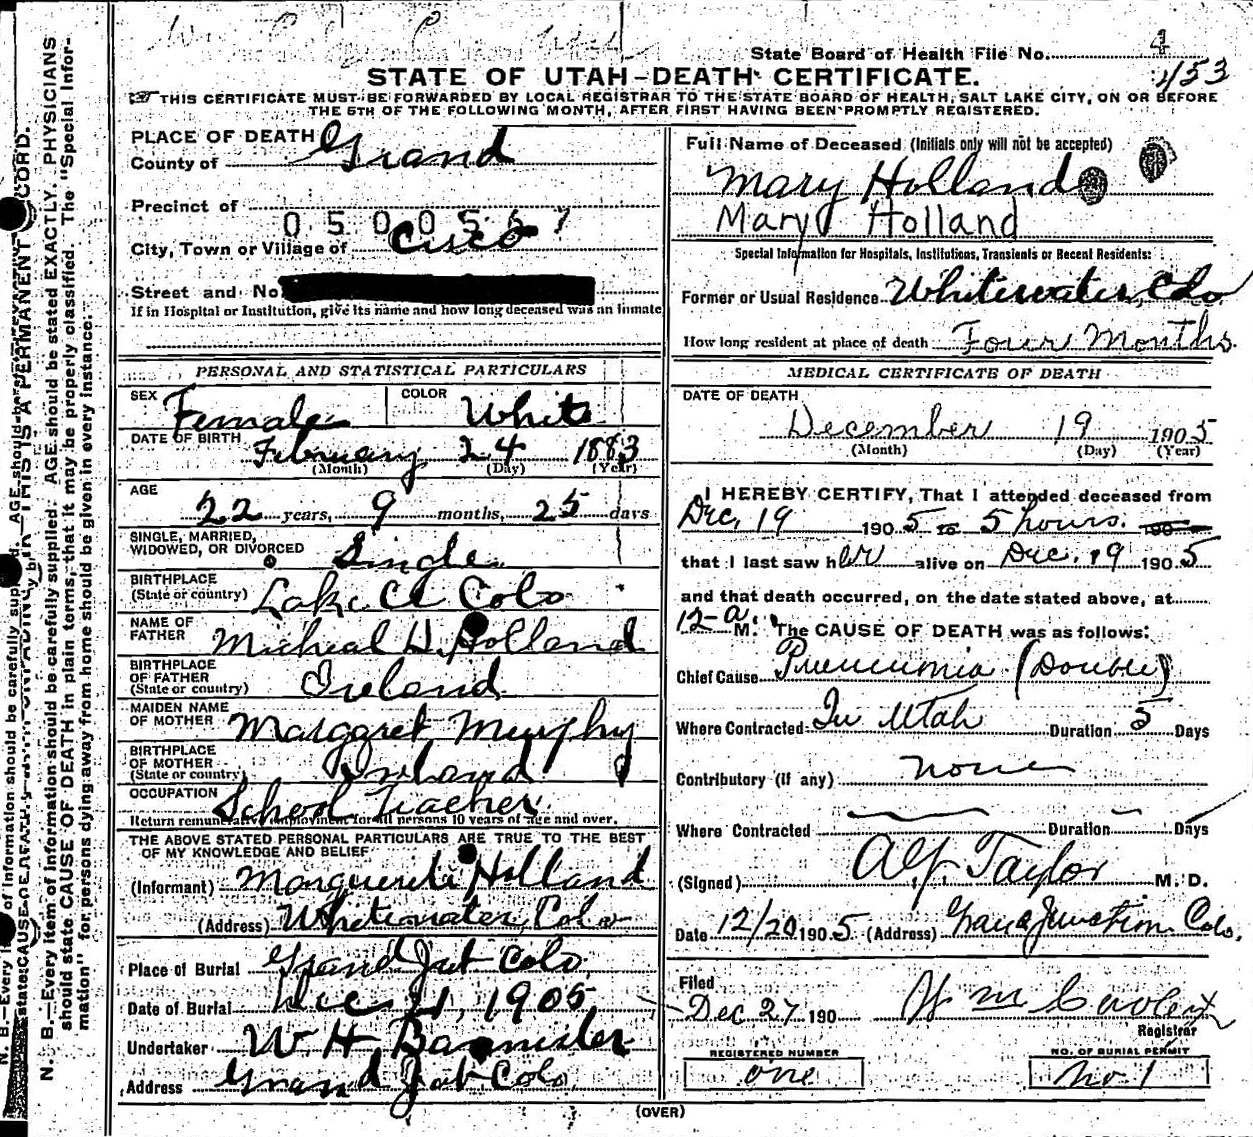 State Board of Health File No. 4
453
STATE OF UTAH-DEATH CERTIFICATE.
THIS CERTIFICATE MUST BE FORWARDED BY LOCAL REGISTRAR TO THE STATE BOARD OF HEALTH, SALT LAKE CITY, ON OR BEFORE
THE 5TH OF THE FOLLOWING MONTH, AFTER FIRST HAVING BEEN PROMPTLY REGISTERED.
PLACE OF DEATH
County of Grand
Precinct of
0500567
City, Town or Village of Cisco
Street and No.
If in Hospital or Institution, give its name and how long deceased was an inmate
PERSONAL AND STATISTICAL PARTICULARS
SEX Female COLOR White
DATE OF BIRTH
February 24 1883
(Month) (Day) (Year)
AGE
22 years, 9 months, 25 days
SINGLE, MARRIED,
WIDOWED, OR DIVORCED Single
BIRTHPLACE
(State or country) Lake Co Colo
NAME OF
FATHER Micheal H. Holland
BIRTHPLACE
OF FATHER
(State or country) Ireland
MAIDEN NAME
OF MOTHER Margaret Murphy
BIRTHPLACE
OF MOTHER
(State or country) Ireland
OCCUPATION School Teacher
Return remunerative employment for all persons 10 years of age and over.
THE ABOVE STATED PERSONAL PARTICULARS ARE TRUE TO THE BEST
OF MY KNOWLEDGE AND BELIEF
(Informant) Marguerite Holland
(Address) Whitewater, Colo
Place of Burial Grand Jct Colo.
Date of Burial Dec 21, 1905
Undertaker W. H. Bannister
Address Grand Jct Colo.
Full Name of Deceased (Initials only will not be accepted)
Mary Holland
Mary Holland
Special Information for Hospitals, Institutions, Transients or Recent Residents:
Former or Usual Residence Whitewater, Colo
How long resident at place of death Four Months.
MEDICAL CERTIFICATE OF DEATH
DATE OF DEATH
December 19 1905
(Month) (Day) (Year)
I HEREBY CERTIFY, That I attended deceased from
Dec. 19 190 5 to 5 hours. 190
that I last saw her alive on Dec. 19 190 5
and that death occurred, on the date stated above, at
12-a. M. The CAUSE OF DEATH was as follows:
Chief Cause Pneumonia (Double)
Where Contracted In Utah Duration 5 Days
Contributory (if any) none
Where Contracted Duration Days
(Signed) Alf. Taylor M. D.
Date 12/20 190 5 (Address) Grand Junction Colo.
Filed
Dec 27 190
Registrar
REGISTERED NUMBER
one
NO. OF BURIAL PERMIT
No. 1
(OVER)
N. B.—Every item of information should be carefully supplied. AGE should be stated EXACTLY. PHYSICIANS
should state CAUSE OF DEATH in plain terms, that it may be properly classified. The "Special Infor-
mation" for persons dying away from home should be given in every instance.
THIS IS A PERMANENT RECORD.